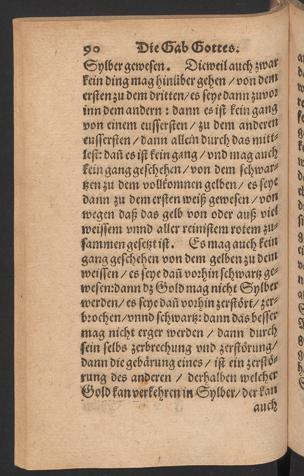 90 Die Gab Gottes.
Sylber gewesen. Dieweil auch zwar
kein ding mag hinüber gehen / von dem
ersten zu dem dritten / es seye dann zuvor
inn dem andern : dann es ist kein gang
von einem eussersten / zu dem anderen
eussersten / dann allein durch das mitt-
lest: dañ es ist kein gang / vnd mag auch
kein gang geschehen / von dem schwar-
tzen zu dem vollkomnen gelben / es seye
dann zu dem ersten weiß gewesen / von
wegen daß das gelb von oder auß viel
weissem vnnd aller reinistem rotem zu-
sammen gesetzt ist. Es mag auch kein
gang geschehen von dem gelben zu dem
weissen / es seye dañ vorhin schwartz ge-
wesen: dann dz Gold mag nicht Sylber
werden / es seye dañ vorhin zerstört / zer-
brochen / vnnd schwartz: dann das besser
mag nicht erger werden / dann durch
sein selbs zerbrechung vnd zerstörung /
dann die gebärung eines / ist ein zerstö-
rung des anderen / derhalben welcher
Gold kan verkehren in Sylber / der kan
auch